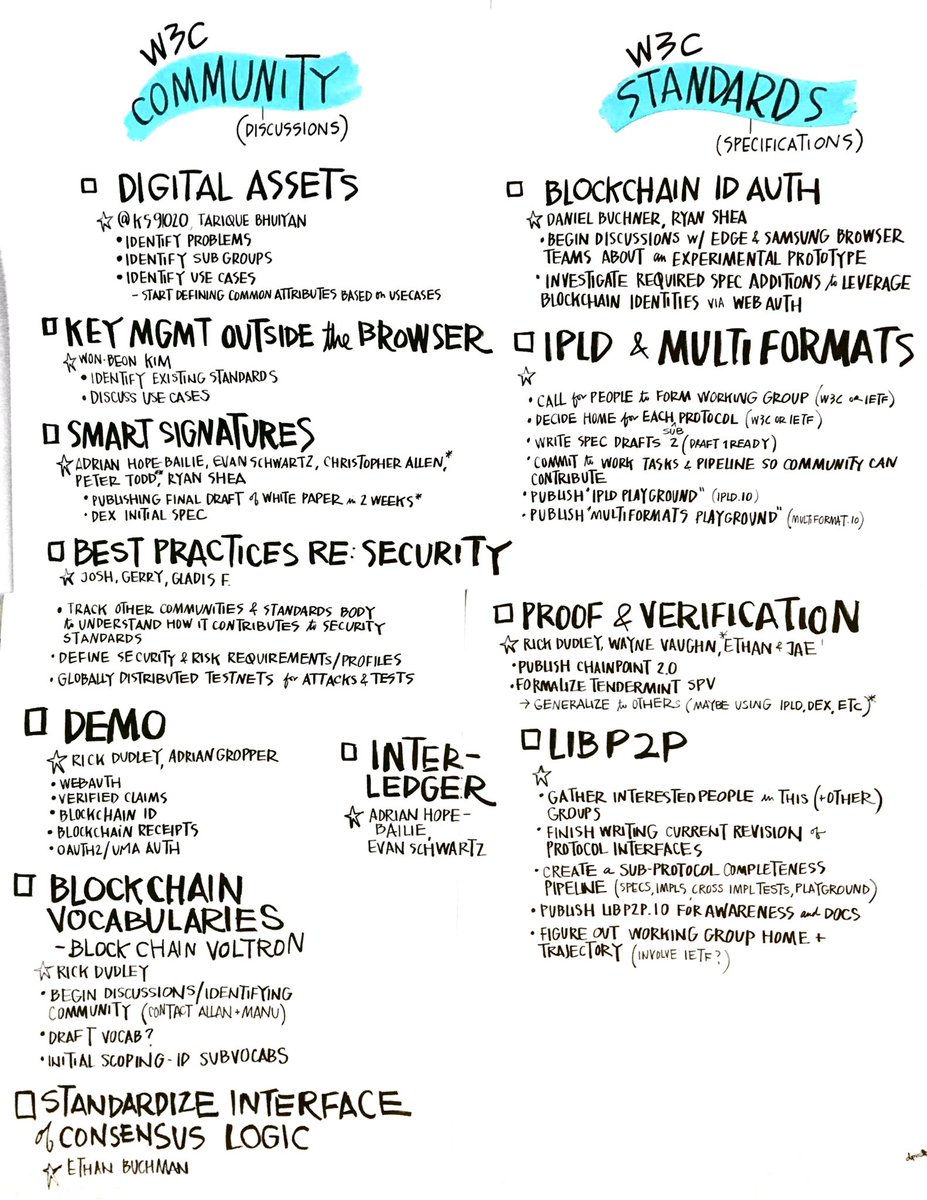 W3C
COMMUNITY
(DISCUSSIONS)
DIGITAL ASSETS
@KS91020, TARIQUE BHUIYAN
• IDENTIFY PROBLEMS
• IDENTIFY SUB GROUPS
• IDENTIFY USE CASES
- START DEFINING COMMON ATTRIBUTES BASED on USECASES
KEY MGMT OUTSIDE the BROWSER
WON-BEON KIM
• IDENTIFY EXISTING STANDARDS
• DISCUSS USE CASES
SMART SIGNATURES
ADRIAN HOPE-BAILIE, EVAN SCHWARTZ, CHRISTOPHER ALLEN,*
PETER TODD,* RYAN SHEA
• PUBLISHING FINAL DRAFT of WHITE PAPER in 2 WEEKS*
• DEX INITIAL SPEC
BEST PRACTICES RE: SECURITY
JOSH, GERRY, GLADIS F.
• TRACK OTHER COMMUNITIES & STANDARDS BODY
to UNDERSTAND HOW IT CONTRIBUTES to SECURITY
STANDARDS
• DEFINE SECURITY & RISK REQUIREMENTS/PROFILES
• GLOBALLY DISTRIBUTED TESTNETS for ATTACKS & TESTS
DEMO
RICK DUDLEY, ADRIAN GROPPER
• WEBAUTH
• VERIFIED CLAIMS
• BLOCKCHAIN ID
• BLOCKCHAIN RECEIPTS
• OAUTH2/UMA AUTH
INTER-
LEDGER
ADRIAN HOPE-
BAILIE,
EVAN SCHWARTZ
BLOCKCHAIN
VOCABULARIES
- BLOCK CHAIN VOLTRON
RICK DUDLEY
• BEGIN DISCUSSIONS/IDENTIFYING
COMMUNITY (CONTACT ALLAN + MANU)
• DRAFT VOCAB?
• INITIAL SCOPING - ID SUBVOCABS
STANDARDIZE INTERFACE
of CONSENSUS LOGIC
ETHAN BUCHMAN
W3C
STANDARDS
(SPECIFICATIONS)
BLOCKCHAIN ID AUTH
DANIEL BUCHNER, RYAN SHEA
• BEGIN DISCUSSIONS w/ EDGE & SAMSUNG BROWSER
TEAMS ABOUT an EXPERIMENTAL PROTOTYPE
• INVESTIGATE REQUIRED SPEC ADDITIONS to LEVERAGE
BLOCKCHAIN IDENTITIES VIA WEB AUTH
IPLD & MULTIFORMATS
• CALL for PEOPLE to FORM WORKING GROUP (W3C OR IETF)
• DECIDE HOME for EACH SUB PROTOCOL (W3C OR IETF)
• WRITE SPEC DRAFTS 2 (DRAFT 1 READY)
• COMMIT to WORK TASKS & PIPELINE SO COMMUNITY CAN
CONTRIBUTE
• PUBLISH "IPLD PLAYGROUND" (IPLD.IO)
• PUBLISH "MULTIFORMATS PLAYGROUND" (MULTIFORMAT.IO)
PROOF & VERIFICATION
RICK DUDLEY, WAYNE VAUGHN,* ETHAN & JAE
• PUBLISH CHAINPOINT 2.0
• FORMALIZE TENDERMINT SPV
→ GENERALIZE to OTHERS (MAYBE USING IPLD, DEX, ETC)*
LIBP2P
• GATHER INTERESTED PEOPLE in THIS (+OTHER)
GROUPS
• FINISH WRITING CURRENT REVISION of
PROTOCOL INTERFACES
• CREATE a SUB-PROTOCOL COMPLETENESS
PIPELINE (SPECS, IMPLS, CROSS IMPL TESTS, PLAYGROUND)
• PUBLISH LIBP2P.IO FOR AWARENESS and DOCS
• FIGURE OUT WORKING GROUP HOME +
TRAJECTORY (INVOLVE IETF?)